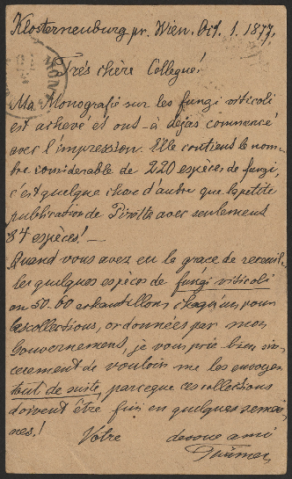 Klosterneuburg pr. Wien. Oct. 1. 1877.
Très chère Collegue!
Ma Monografie sur les fungi viticoli
est achevé et ont-à dejas commencé
avec l'impression. Elle contient le nom-
bre considerable de 220 espèces de fungi,
c'est quelque chose d'autre que la petite
publication de Pirotta avec seulement
84 espèces! —
Quand vous avez eu la grace de recueil-
lir quelques espèces de fungi viticoli
en 50-60 echantillons chaqu'un, pour
les collections, ordonnées par mon
Gouvernement, je vous prie bien sin-
cerement de vouloir me les envoyer
tout de suite, parceque ces collections
doivent être finis en quelques semai-
nes!
Votre devoué ami
Thümen